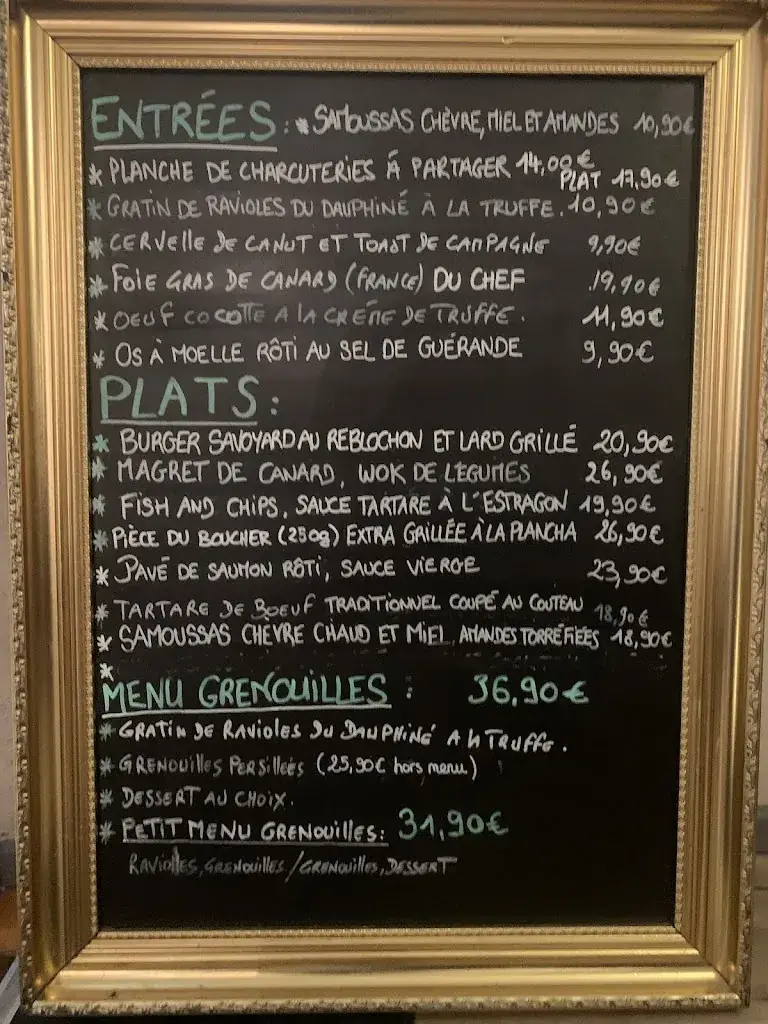 ENTRÉES : * SAMOUSSAS CHÈVRE, MIEL ET AMANDES 10,90€
* PLANCHE DE CHARCUTERIES Á PARTAGER 14,00€
PLAT 17,90€
* GRATIN DE RAVIOLES DU DAUPHINÉ À LA TRUFFE. 10,90€
* CERVELLE DE CANUT ET TOAST DE CAMPAGNE 9,90€
* FOIE GRAS DE CANARD (FRANCE) DU CHEF 19,90€
* OEUF COCOTTE A LA CRÉME DE TRUFFE. 11,90€
* OS À MOELLE RÔTI AU SEL DE GUÉRANDE 9,90€
PLATS :
* BURGER SAVOYARD AU REBLOCHON ET LARD GRILLÉ 20,90€
* MAGRET DE CANARD, WOK DE LÉGUMES 26,90€
* FISH AND CHIPS, SAUCE TARTARE À L'ESTRAGON 19,90€
* PIÈCE DU BOUCHER (250g) EXTRA GRILLÉE À LA PLANCHA 26,90€
* PAVÉ DE SAUMON RÔTI, SAUCE VIERGE 23,90€
* TARTARE DE BOEUF TRADITIONNEL COUPÉ AU COUTEAU 18,90€
* SAMOUSSAS CHÈVRE CHAUD ET MIEL, AMANDES TORRÉFIÉES 18,90€
*
MENU GRENOUILLES : 36,90€
* GRATIN DE RAVIOLES DU DAUPHINÉ A LA TRUFFE.
* GRENOUILLES PERSILLÉES (25,90€ hors menu)
* DESSERT AU CHOIX.
* PETIT MENU GRENOUILLES: 31,90€
RAVIOLLES, GRENOUILLES / GRENOUILLES, DESSERT